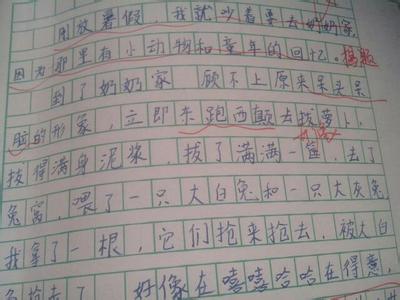 刚放暑假，我就吵着要去奶奶家
因为那里有小动物和童年的回忆。
到了奶奶家 顾不上原来呆头呆
脑的形象，立即东跑西颠去拔萝卜，
拔得满身泥浆，拔了满满一筐，去了
兔窝，喂了一只大白兔和一只大灰兔
我拿了一根，它们抢来抢去，被大白
好像在嘻嘻哈哈在得意，